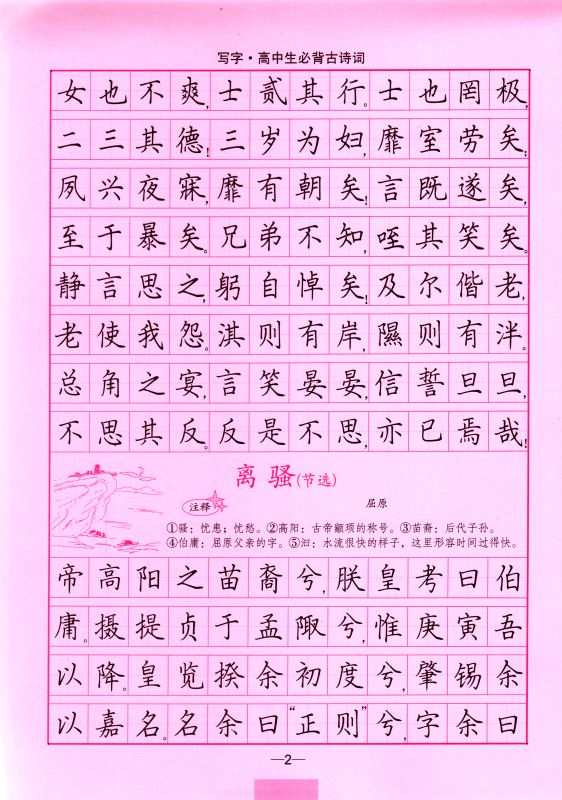 写字·高中生必背古诗词
女也不爽,士贰其行。士也罔极,
二三其德!三岁为妇,靡室劳矣;
夙兴夜寐,靡有朝矣!言既遂矣,
至于暴矣。兄弟不知,咥其笑矣。
静言思之,躬自悼矣!及尔偕老,
老使我怨。淇则有岸,隰则有泮。
总角之宴,言笑晏晏,信誓旦旦,
不思其反。反是不思,亦已焉哉!
离骚(节选)
注释
屈原
①骚:忧患;忧愁。②高阳:古帝颛顼的称号。③苗裔:后代子孙。
④伯庸:屈原父亲的字。⑤汩:水流很快的样子,这里形容时间过得快。
帝高阳之苗裔兮,朕皇考曰伯
庸。摄提贞于孟陬兮,惟庚寅吾
以降。皇览揆余初度兮,肇锡余
以嘉名。名余曰“正则”兮,字余曰
—2—